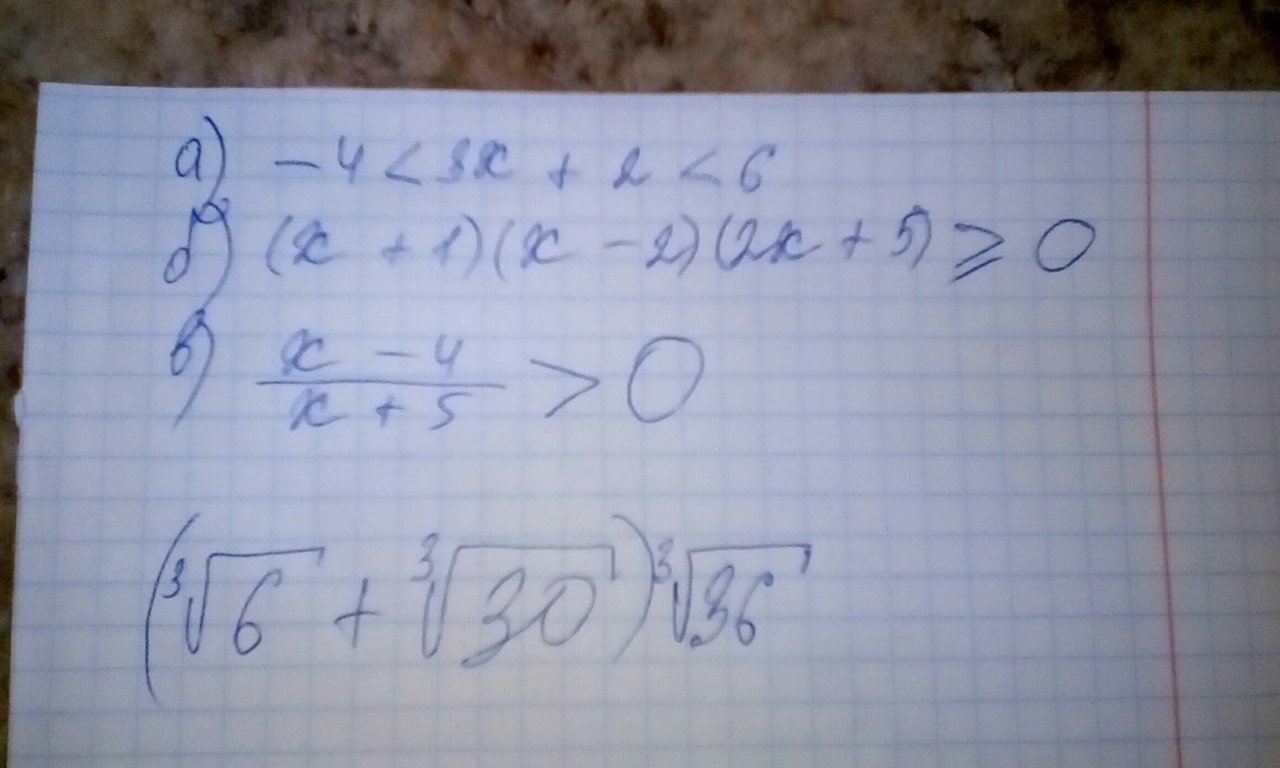 а) -4 < 3x + 2 < 6
б) (x + 1)(x - 2)(2x + 5) ⩾ 0
в) \frac{x - 4}{x + 5} > 0
(∛6 + ∛30)∛36